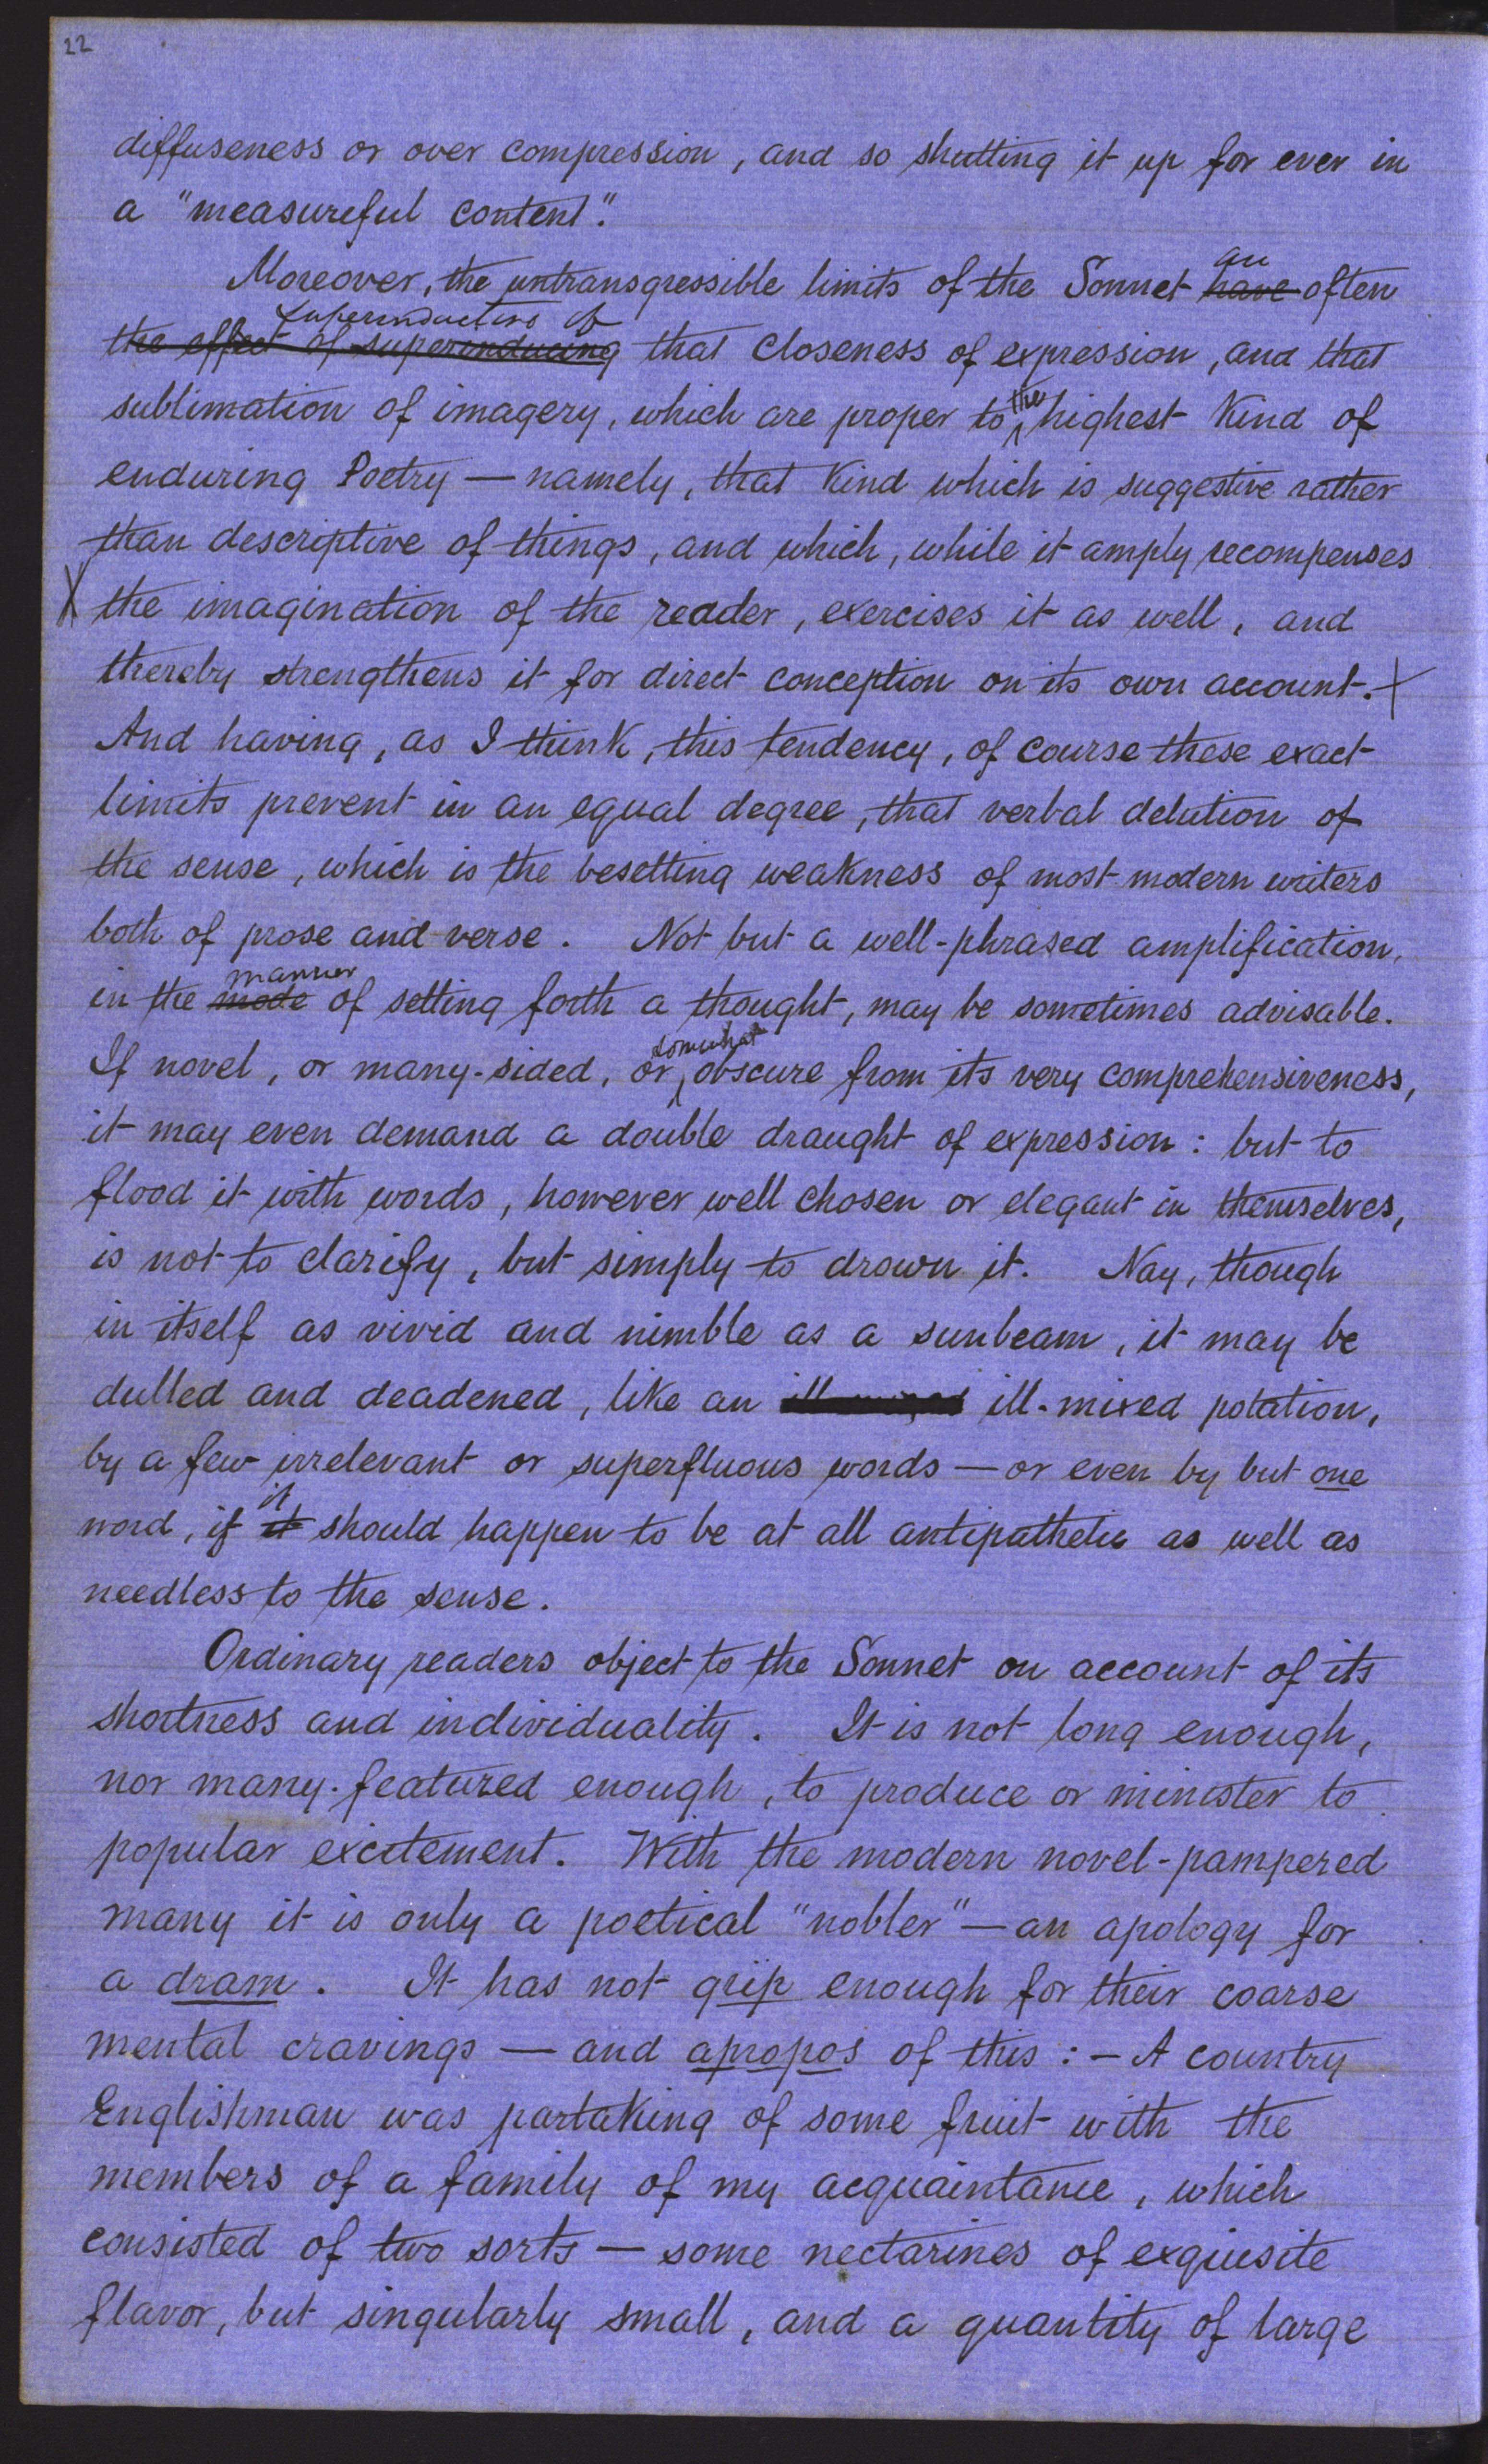 22
diffuseness or over compression, and so shutting it up for ever in
a "measureful content".
Moreover, the untransgressible limits of the Sonnet have are often
the effect of superinducing superinductive of that closeness of expression, and that
sublimation of imagery, which are proper to the highest kind of
enduring Poetry — namely, that kind which is suggestive rather
than descriptive of things, and which, while it amply recompenses
X the imagination of the reader, exercises it as well, and
thereby strengthens it for direct conception on its own account. X
And having, as I think, this tendency, of course these exact
limits prevent in an equal degree, that verbal delution of
the sense, which is the besetting weakness of most modern writers
both of prose and verse. Not but a well-phrased amplification,
in the mode manner of setting forth a thought, may be sometimes advisable.
If novel, or many-sided, or somewhat obscure from its very comprehensiveness,
it may even demand a double draught of expression: but to
flood it with words, however well chosen or elegant in themselves,
is not to clarify, but simply to drown it. Nay, though
in itself as vivid and nimble as a sunbeam, it may be
dulled and deadened, like an ill-mixed potation,
by a few irrelevant or superfluous words — or even by but one
word, if it it should happen to be at all antipathetic as well as
needless to the sense.
Ordinary readers object to the Sonnet on account of its
shortness and individuality. It is not long enough,
nor many-featured enough, to produce or minister to
popular excitement. With the modern novel-pampered
many it is only a poetical "nobler" — an apology for
a dram. It has not grip enough for their coarse
mental cravings — and apropos of this: — A country
Englishman was partaking of some fruit with the
members of a family of my acquaintance, which
consisted of two sorts — some nectarines of exquisite
flavor, but singularly small, and a quantity of large